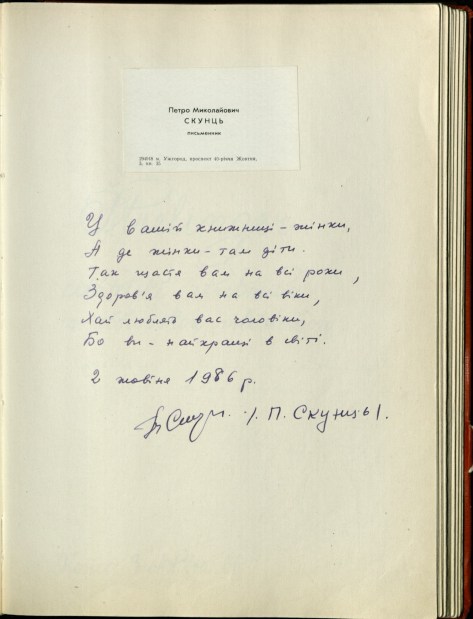 Петро Миколайович
СКУНЦЬ
письменник
м. Ужгород, проспект 40-річчя Жовтня,
У вашій книжниці – жінки,
А де жінки – там діти.
Так щастя вам на всі роки,
Здоров'я вам на всі віки,
Хай люблять вас чоловіки,
Бо ви – найкращі в світі.
2 жовтня 1986 р.
/П. Скунць/.